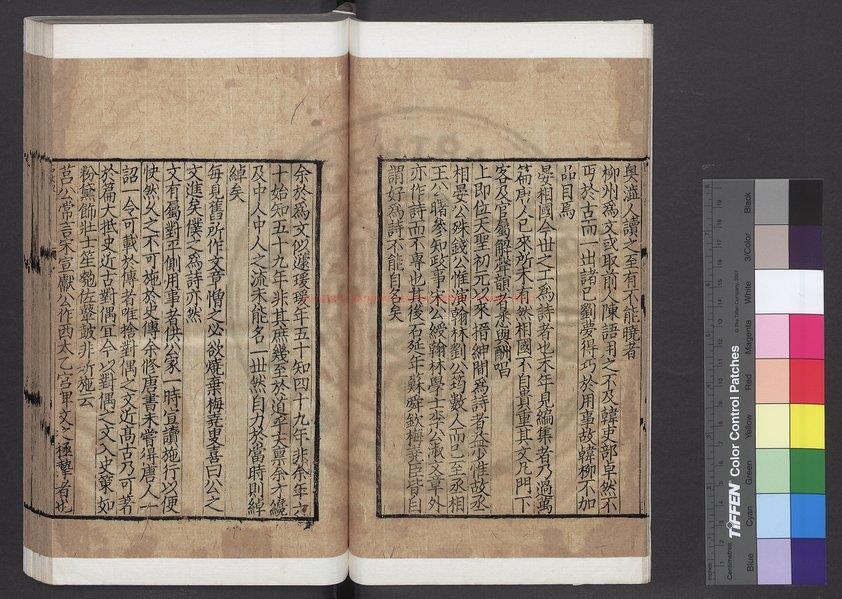 與澁人讀之至有不能曉者
柳州爲文或取前人陳語用之不及韓吏部卓然不
丐於古而一出諸己劉夢得巧於用事故韓柳不加
品目焉
晏相國今世之工爲詩者也末年見編集者乃過萬
篇唐人已來所未有然相國不自貴重其文凡門下
客及官屬解聲韻者悉與酬唱
上即位天聖初元以來搢紳間爲詩者益少惟故丞
相晏公殊錢公惟演翰林劉公筠數人而已至丞相
王公曙參知政事宋公綬翰林學士李公淑文章外
亦作詩而不專也其後石延年蘇舜欽梅堯臣皆自
謂好爲詩不能自名矣
余於爲文似蘧瑗瑗年五十知四十九年非余年六
十始知五十九年非其庶幾至於道乎天稟余才纔
及中人中人之流未能名一世然自力於當時則綽
綽矣
每見舊所作文章憎之必欲燒棄梅堯臣喜曰公之
文進矣僕之爲詩亦然
文有屬對平側用事者供公家一時宣讀施行以便
快然久之不可施於史傳余修唐書未嘗得唐人一
詔一令可載於傳者唯捨對偶之文近高古乃可著
於篇大抵史近古對偶宜今以對偶之文入史策如
粉黛飾壯士笙匏佐鼙鼓非所施云
莒公常言宋宣獻公作西太乙宮碑文之極摯者也
TIFFEN Color Control Patches
© The Tiffen Company, 2007
Centimetres
Inches
Blue
Cyan
Green
Yellow
Red
Magenta
White
3/Color
Black